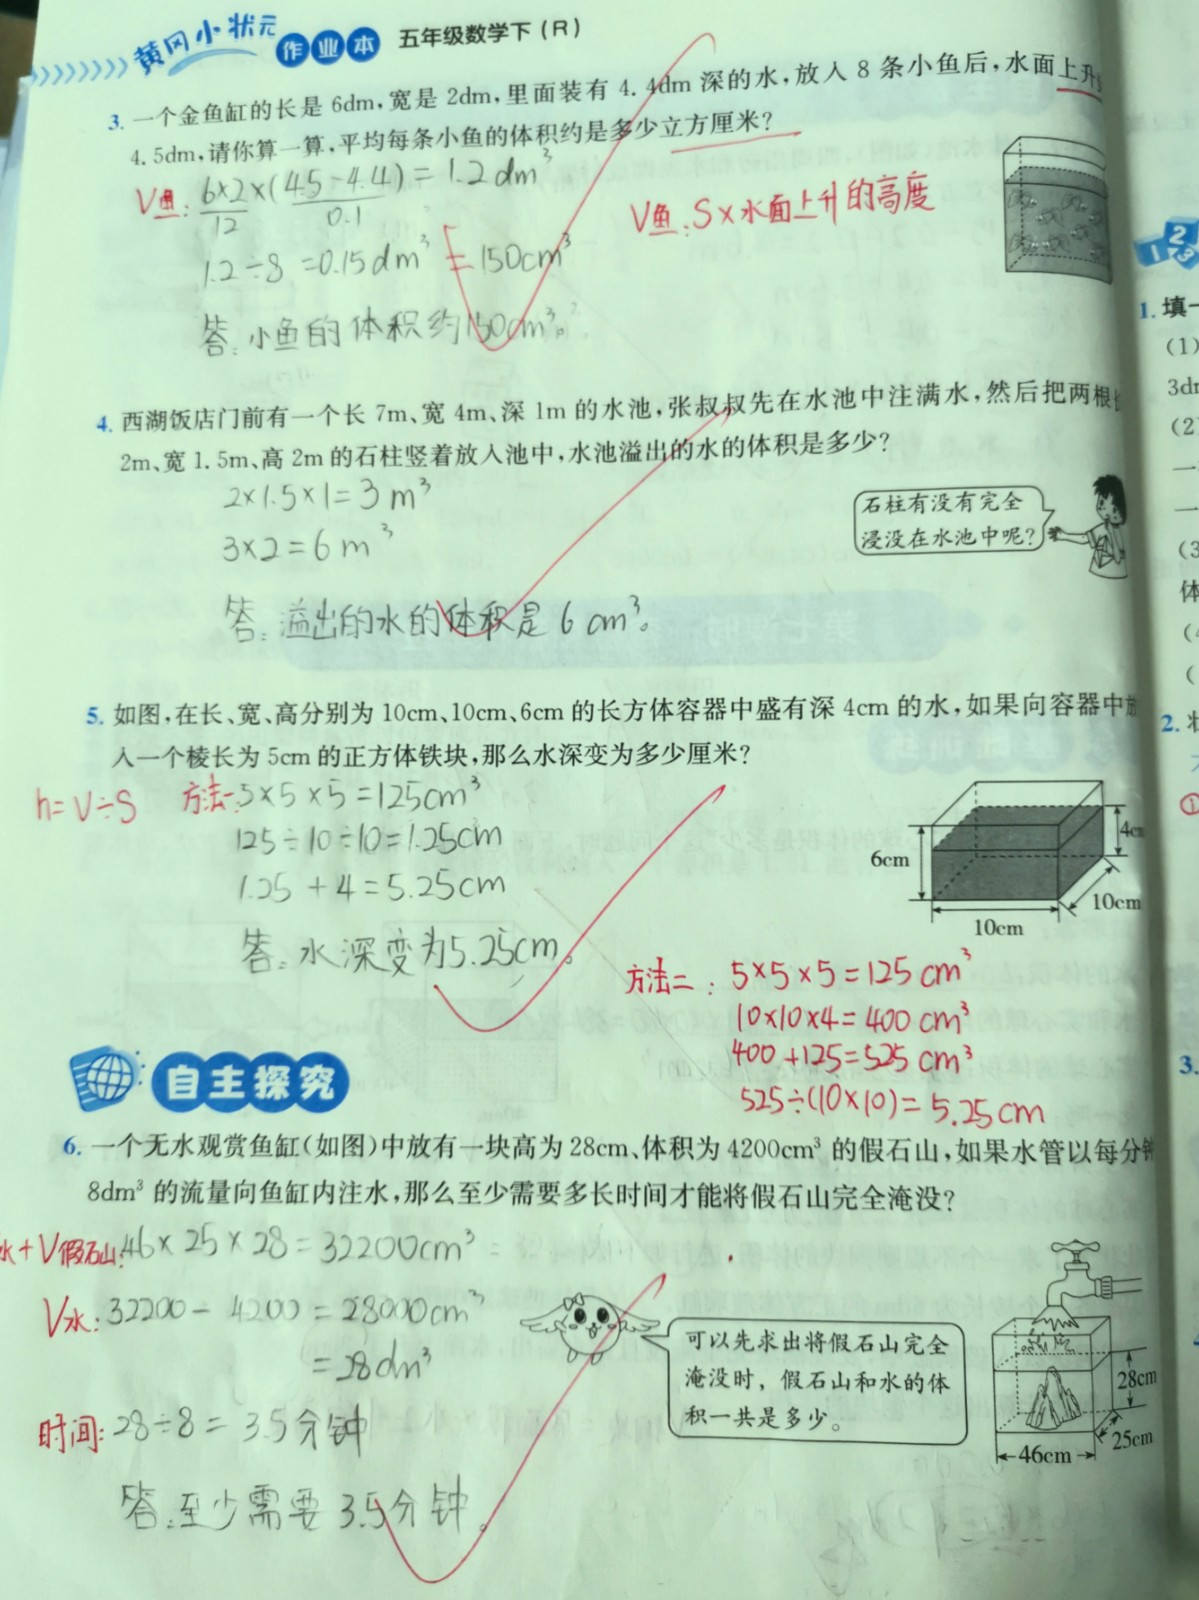 黄冈小状元作业本 五年级数学下(R)
3. 一个金鱼缸的长是6dm,宽是2dm,里面装有4.4dm深的水,放入8条小鱼后,水面上升
4.5dm,请你算一算,平均每条小鱼的体积约是多少立方厘米?
V鱼: 6×2×(4.5-4.4)=1.2dm³
12 0.1
V鱼:S×水面上升的高度
1.2÷8=0.15dm³=150cm³
答:小鱼的体积约150cm³。
4. 西湖饭店门前有一个长7m、宽4m、深1m的水池,张叔叔先在水池中注满水,然后把两根长
2m、宽1.5m、高2m的石柱竖着放入池中,水池溢出的水的体积是多少?
2×1.5×1=3m³
3×2=6m³
石柱有没有完全
浸没在水池中呢?
答:溢出的水的体积是6cm³。
5. 如图,在长、宽、高分别为10cm、10cm、6cm的长方体容器中盛有深4cm的水,如果向容器中放
入一个棱长为5cm的正方体铁块,那么水深变为多少厘米?
h=V÷S 方法一:5×5×5=125cm³
125÷10÷10=1.25cm
1.25+4=5.25cm
答:水深变为5.25cm。
6cm
4cm
10cm
10cm
方法二:5×5×5=125cm³
10×10×4=400cm³
400+125=525cm³
525÷(10×10)=5.25cm
自主探究
6. 一个无水观赏鱼缸(如图)中放有一块高为28cm、体积为4200cm³的假石山,如果水管以每分钟
8dm³的流量向鱼缸内注水,那么至少需要多长时间才能将假石山完全淹没?
水+V假石山:46×25×28=32200cm³
V水:32200-4200=28000cm³
=28dm³
时间:28÷8=3.5分钟
答:至少需要3.5分钟。
可以先求出将假石山完全
淹没时,假石山和水的体
积一共是多少。
28cm
25cm
46cm
1 2 3
1. 填一
(1)
3dm
(2)
一
一
(3
体
(4
(
2.
①
3.